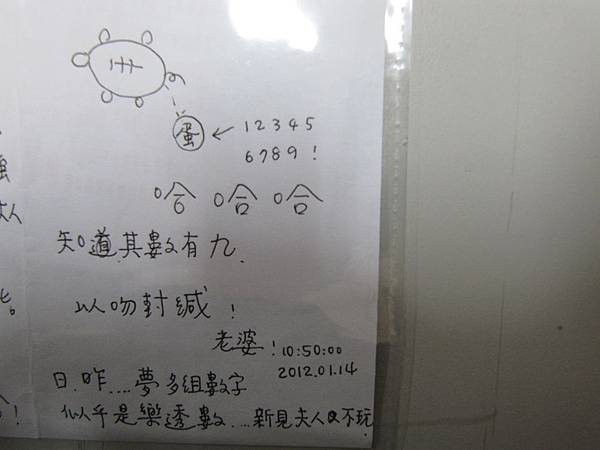 蛋 ← 12345
6789！
哈 哈 哈
知道其數有九
以吻封緘！
老婆！10:50:00
2012.01.14
日昨....夢多組數字
似乎是樂透數...新見夫人又不玩